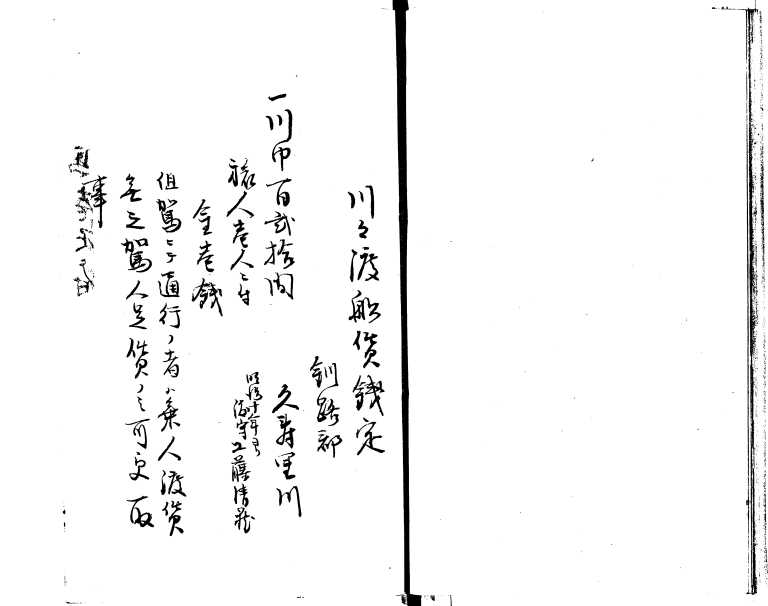 川々渡船賃銭定
釧路郡
一川巾百弐拾間
久寿里川
明治十年ヨリ
渡守工藤清蔵
旅人壱人ニ付
金壱銭
但駕ニテ通行ノ者ハ乗人渡賃
無之駕人足賃ノミ可受取
事